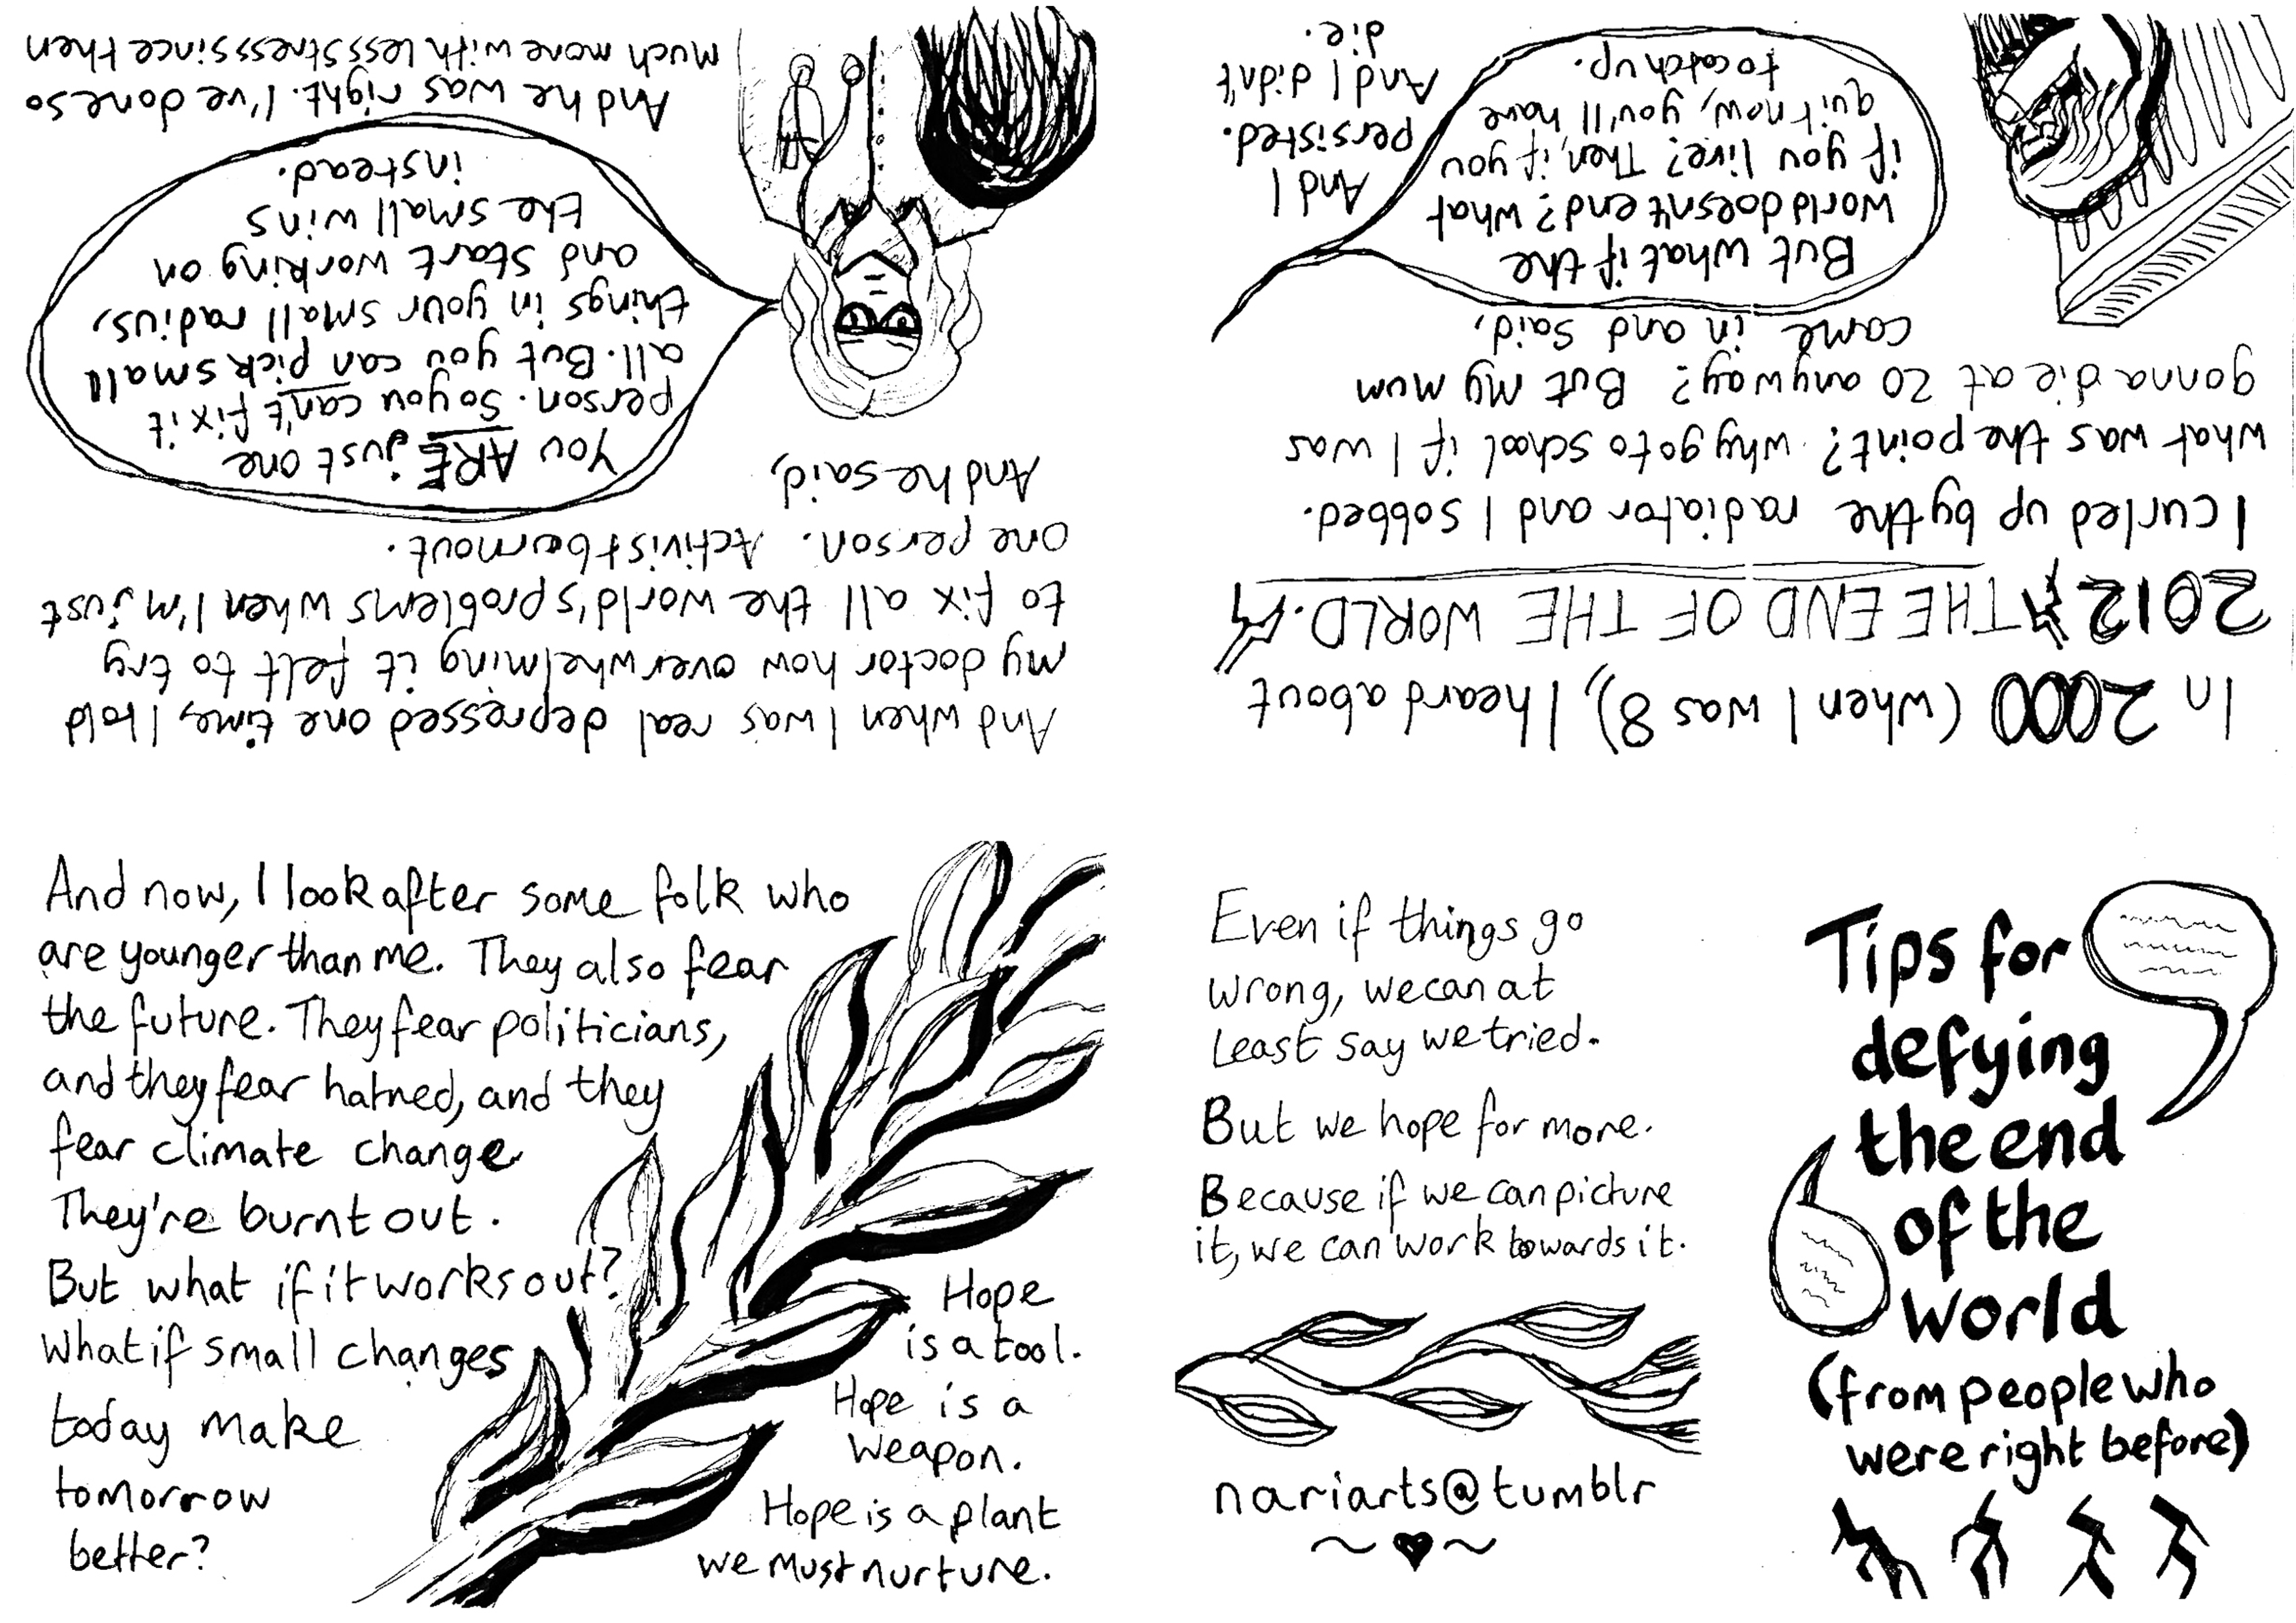 Tips for
defying
the end
of the
world
(from people who
were right before)
In 2000 (when I was 8), I heard about
2012 THE END OF THE WORLD.
I curled up by the radiator and I sobbed.
what was the point? why go to school if I was
gonna die at 20 anyway? But my mum
came in and said,
But what if the
world doesn't end? what
if you live? Then, if you
quit now, you'll have
to catch up.
And I
persisted.
And I didn't
die.
And when I was real depressed one time, I told
my doctor how overwhelming it felt to try
to fix all the world's problems when I'm just
one person. Activist burnout.
And he said,
You ARE just one
person. So you can't fix it
all. But you can pick small
things in your small radius,
and start working on
the small wins
instead.
And he was right. I've done so
much more with less stress since then
And now, I look after some folk who
are younger than me. They also fear
the future. They fear politicians,
and they fear hatred, and they
fear climate change
They're burnt out.
But what if it works out?
What if small changes
today make
tomorrow
better?
Hope
is a tool.
Hope is a
weapon.
Hope is a plant
we must nurture.
Even if things go
wrong, we can at
least say we tried.
But we hope for more.
Because if we can picture
it, we can work towards it.
nariarts@tumblr
~♥~